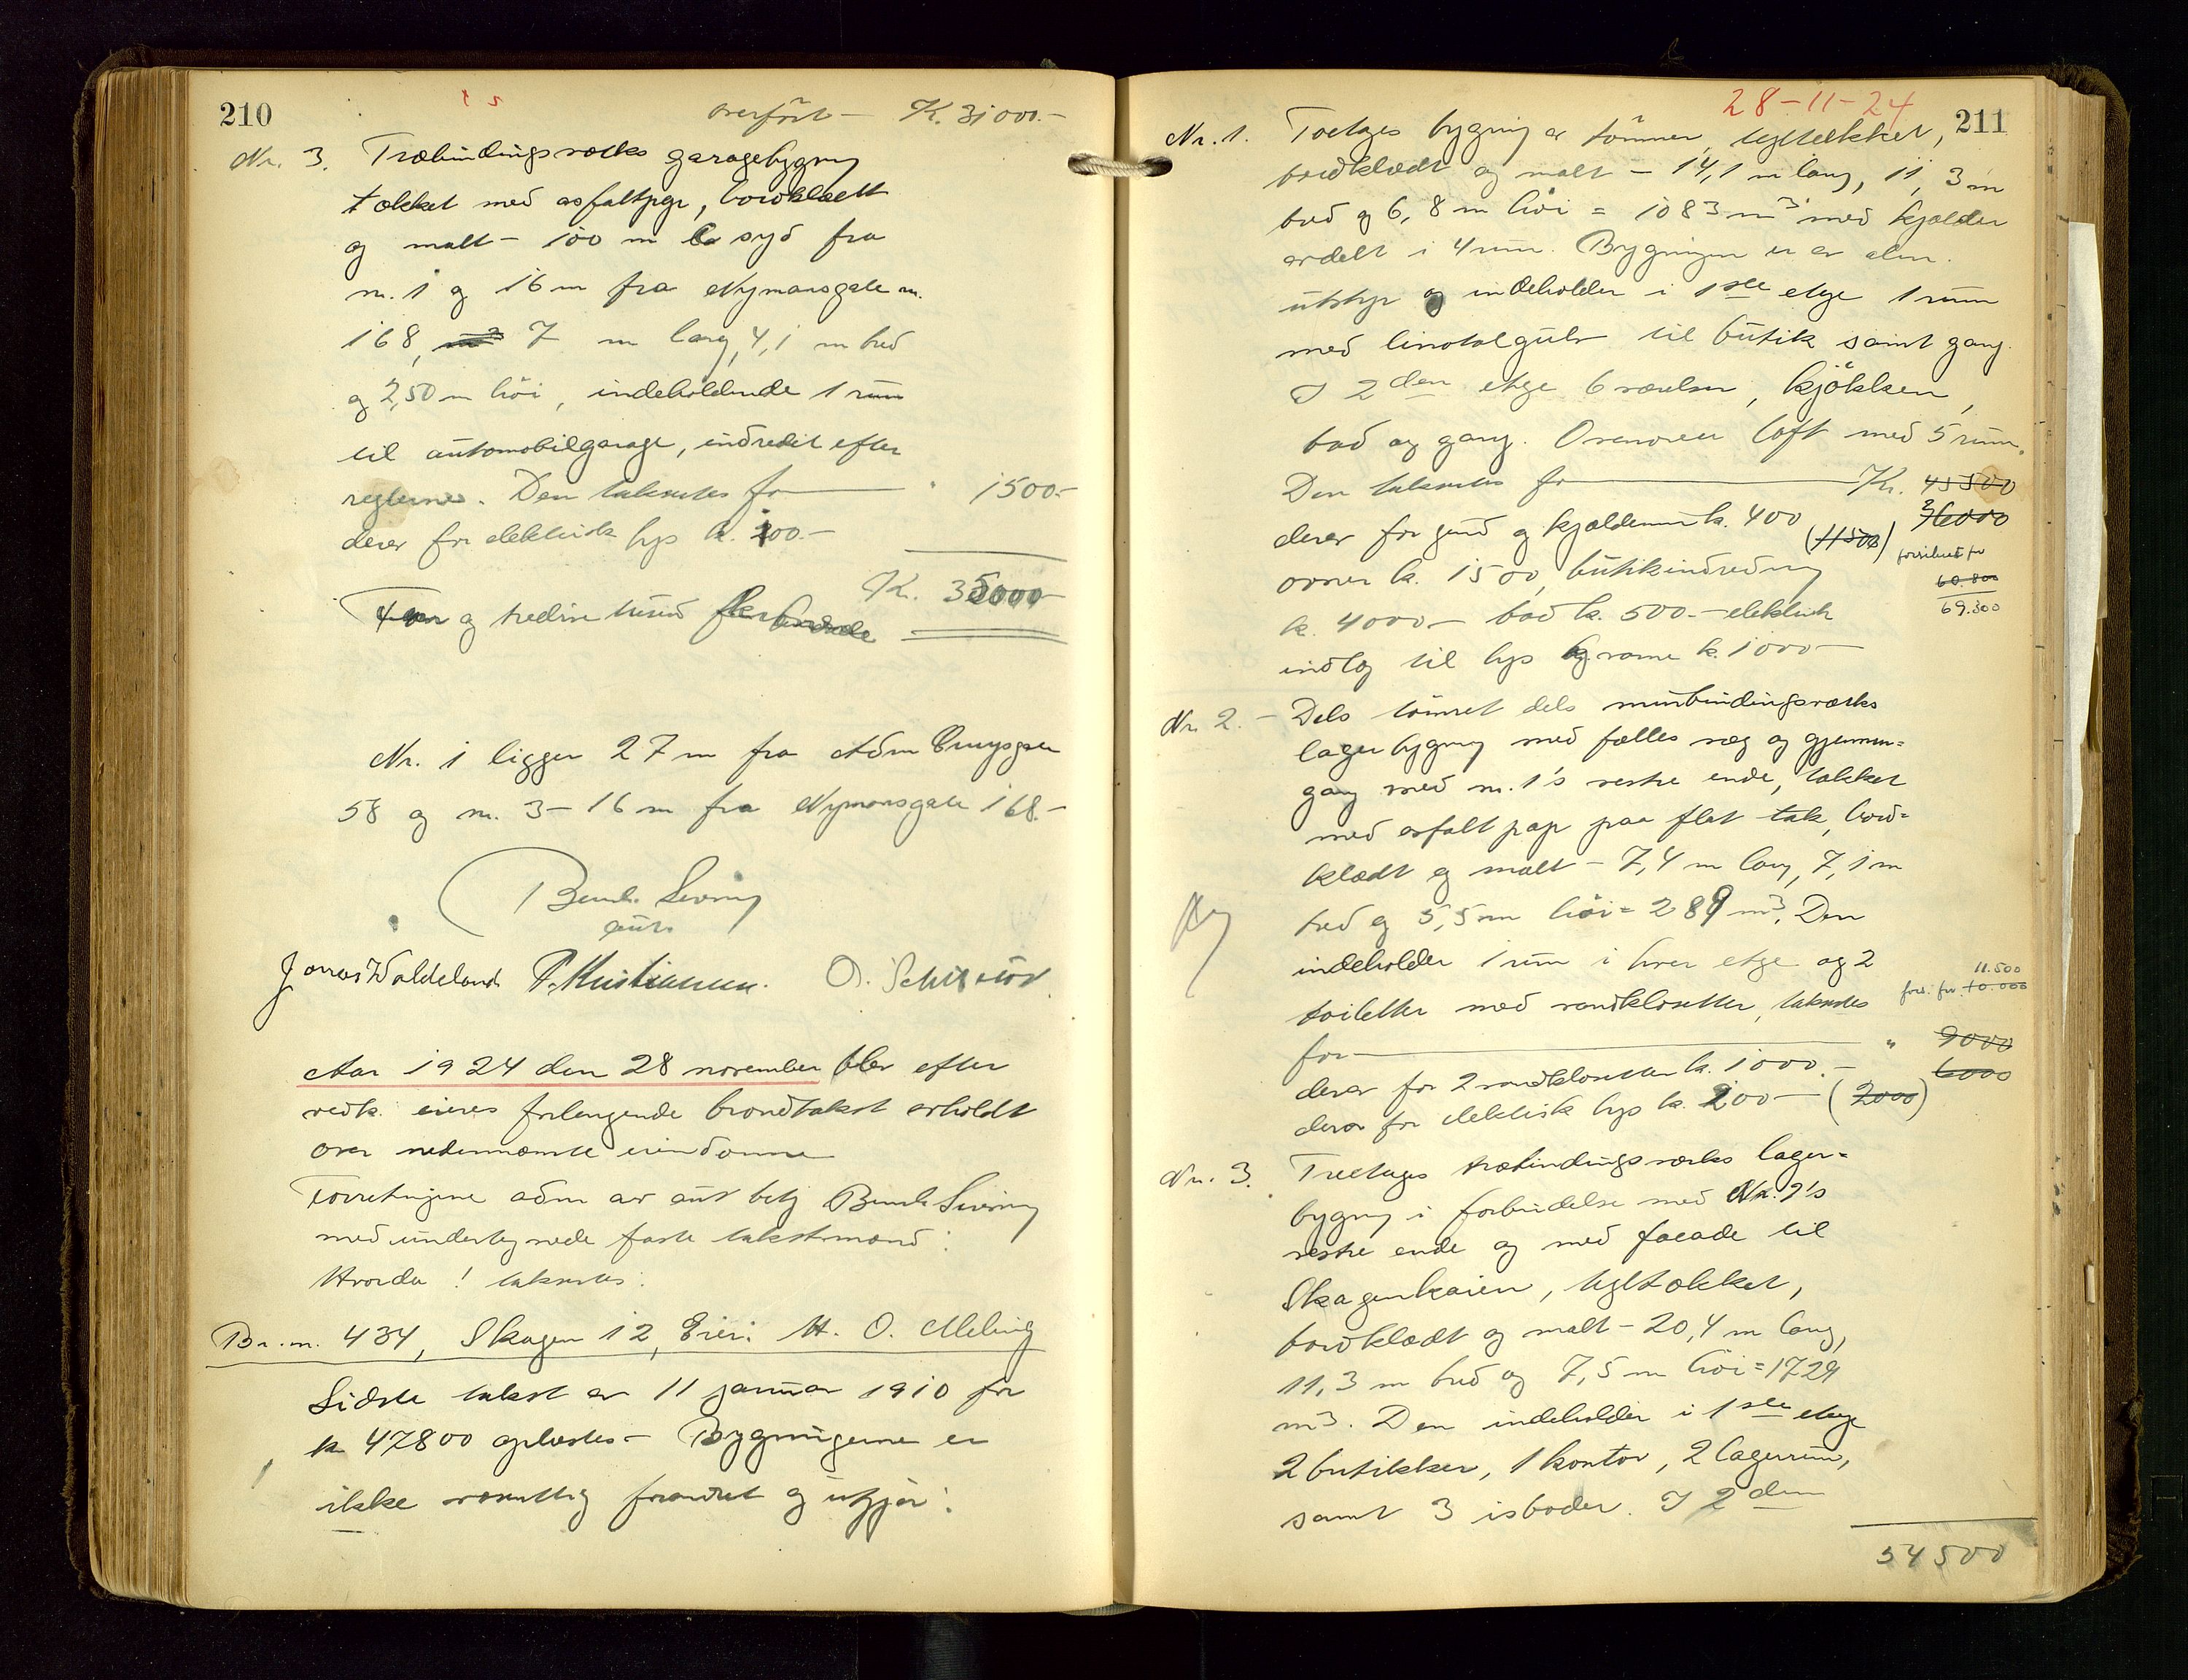 210
overført – K. 31000.–
Nr. 3. Træbindingsverks garagebygning
tækket med asfaltpap, bordklædt
og malt – 100 m syd fra
nr. 1 og 16 m fra Nymansgate nr.
168, 7 m lang, 4,1 m bred
og 2,50 m høi, indeholdende 1 rum
til automobilgarage, indredet efter
reglerne. Den takseres for " 1500.–
derav for elektrisk lys k. 100.–
K. 35000
og tredive tusind
Nr. 1 ligger 27 m fra
58 og nr. 3 – 16 m fra Nymansgate 168.–
Bernh. Sivring
Jonas Waldeland P. Kristiansen. O.
Aar 1924 den 28 november blev efter
vedk. eieres forlangende brandtakst avholdt
over nedennævnte eiendomme
Forretningene adm av aut bety Bernh Sivring
med undertegnede faste takstmænd:
Hvorda! takseres:
Br. nr. 434, Skagen 12, Eier: H. O. Meling
Sidste takst av 11 januar 1910 for
k 47800 oplæstes – Bygningerne er
ikke væsentlig forandret og utgjør:
28-11-24
211
Nr. 1. Toetages bygning av tømmer, tegltækket,
bordklædt og malt – 14,1 m lang, 11,3 m
bred og 6,8 m høi = 1083 m3 med kjælder
avdelt i 4 rum. Bygningen er av alm.
utstyr og indeholder i 1ste etage 1 rum
med linotolgulv til butik samt gang.
I 2den etage 6 værelser, kjøkken,
bad og gang. Ovenover loft med 5 rum.
Den takseres for Kr. 45500
36000
derav for grund og kjældermur k. 400 (11500) forsikret for
ovner k. 1500, butikindredning 60.800
k. 4000 – bad k. 500.– elektrisk 69.300
indlæg til lys og varme k. 1000 –
Nr. 2. – Dels tømret dels murbindingsverks
lagerbygning med fælles væg og gjennem=
gang med nr. 1's vestre ende, tækket
med asfalt pap paa flat tak, bord=
klædt og malt – 7,4 m lang, 7,1 m
bred og 5,5 m høi = 289 m3. Den
indeholder 1 rum i hver etage og 2
11.500
toiletter med vandklosetter, takseres fors. for 10.000
for " 9000
derav for 2 vandklosetter k. 1000.– 6000
derav for elektrisk lys k. 200 – (2000)
Nr. 3. Treetages træbindingsverks lager=
bygning i forbindelse med Nr. 2's
vestre ende og med facade til
Skagenkaien, tegltækket,
bordklædt og malt – 20,4 m lang,
11,3 m bred og 7,5 m høi = 1729
m3. Den indeholder i 1ste etage
2 butikker, 1 kontor, 2 lagerrum,
samt 3 isboder. I 2den
54500